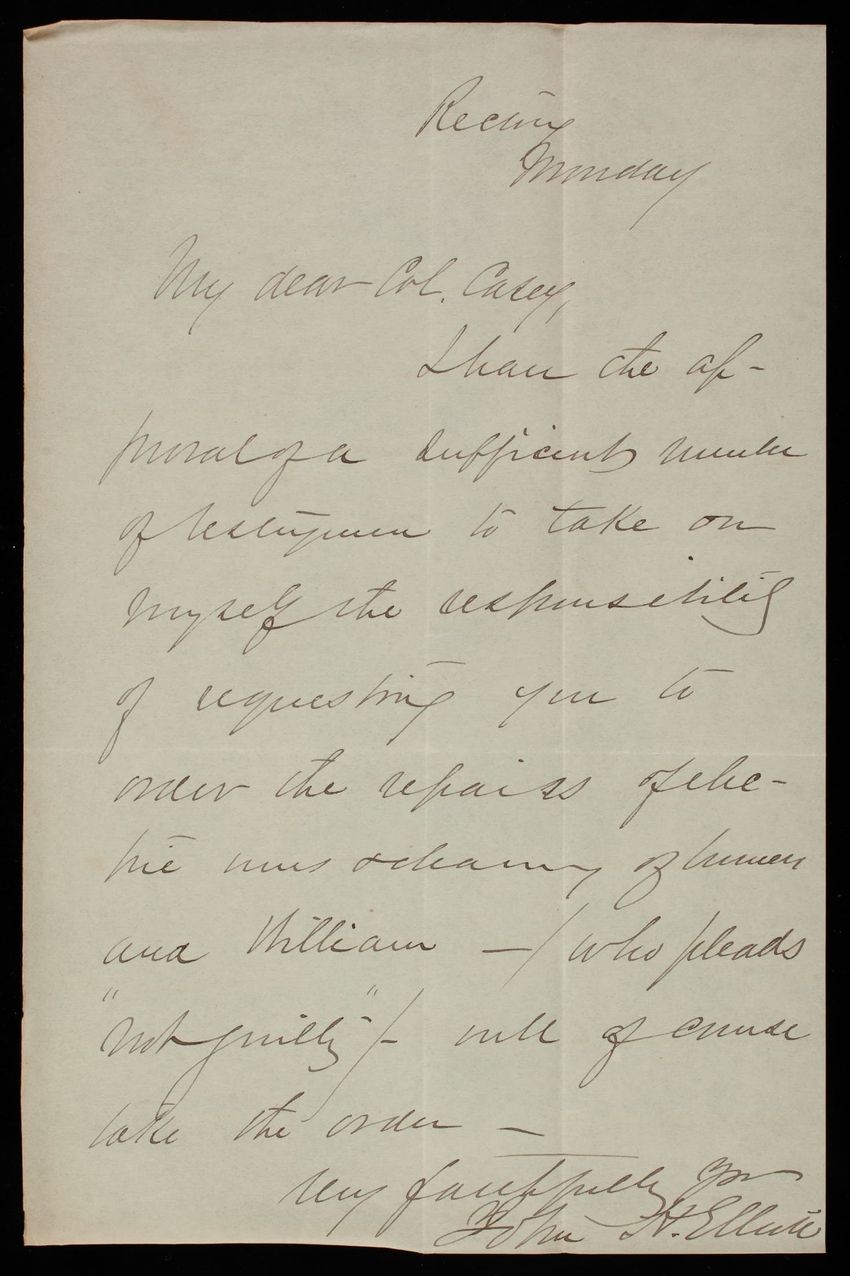 Rectory
Monday
My dear Col. Casey,
I have the ap-
proval of a sufficient number
of vestrymen to take on
myself the responsibility
of requesting you to
order the repairs of elec-
tric
and William — / who pleads
"not guilty" / — will of course
take the order —
Very faithfully yrs
John H. Elliott